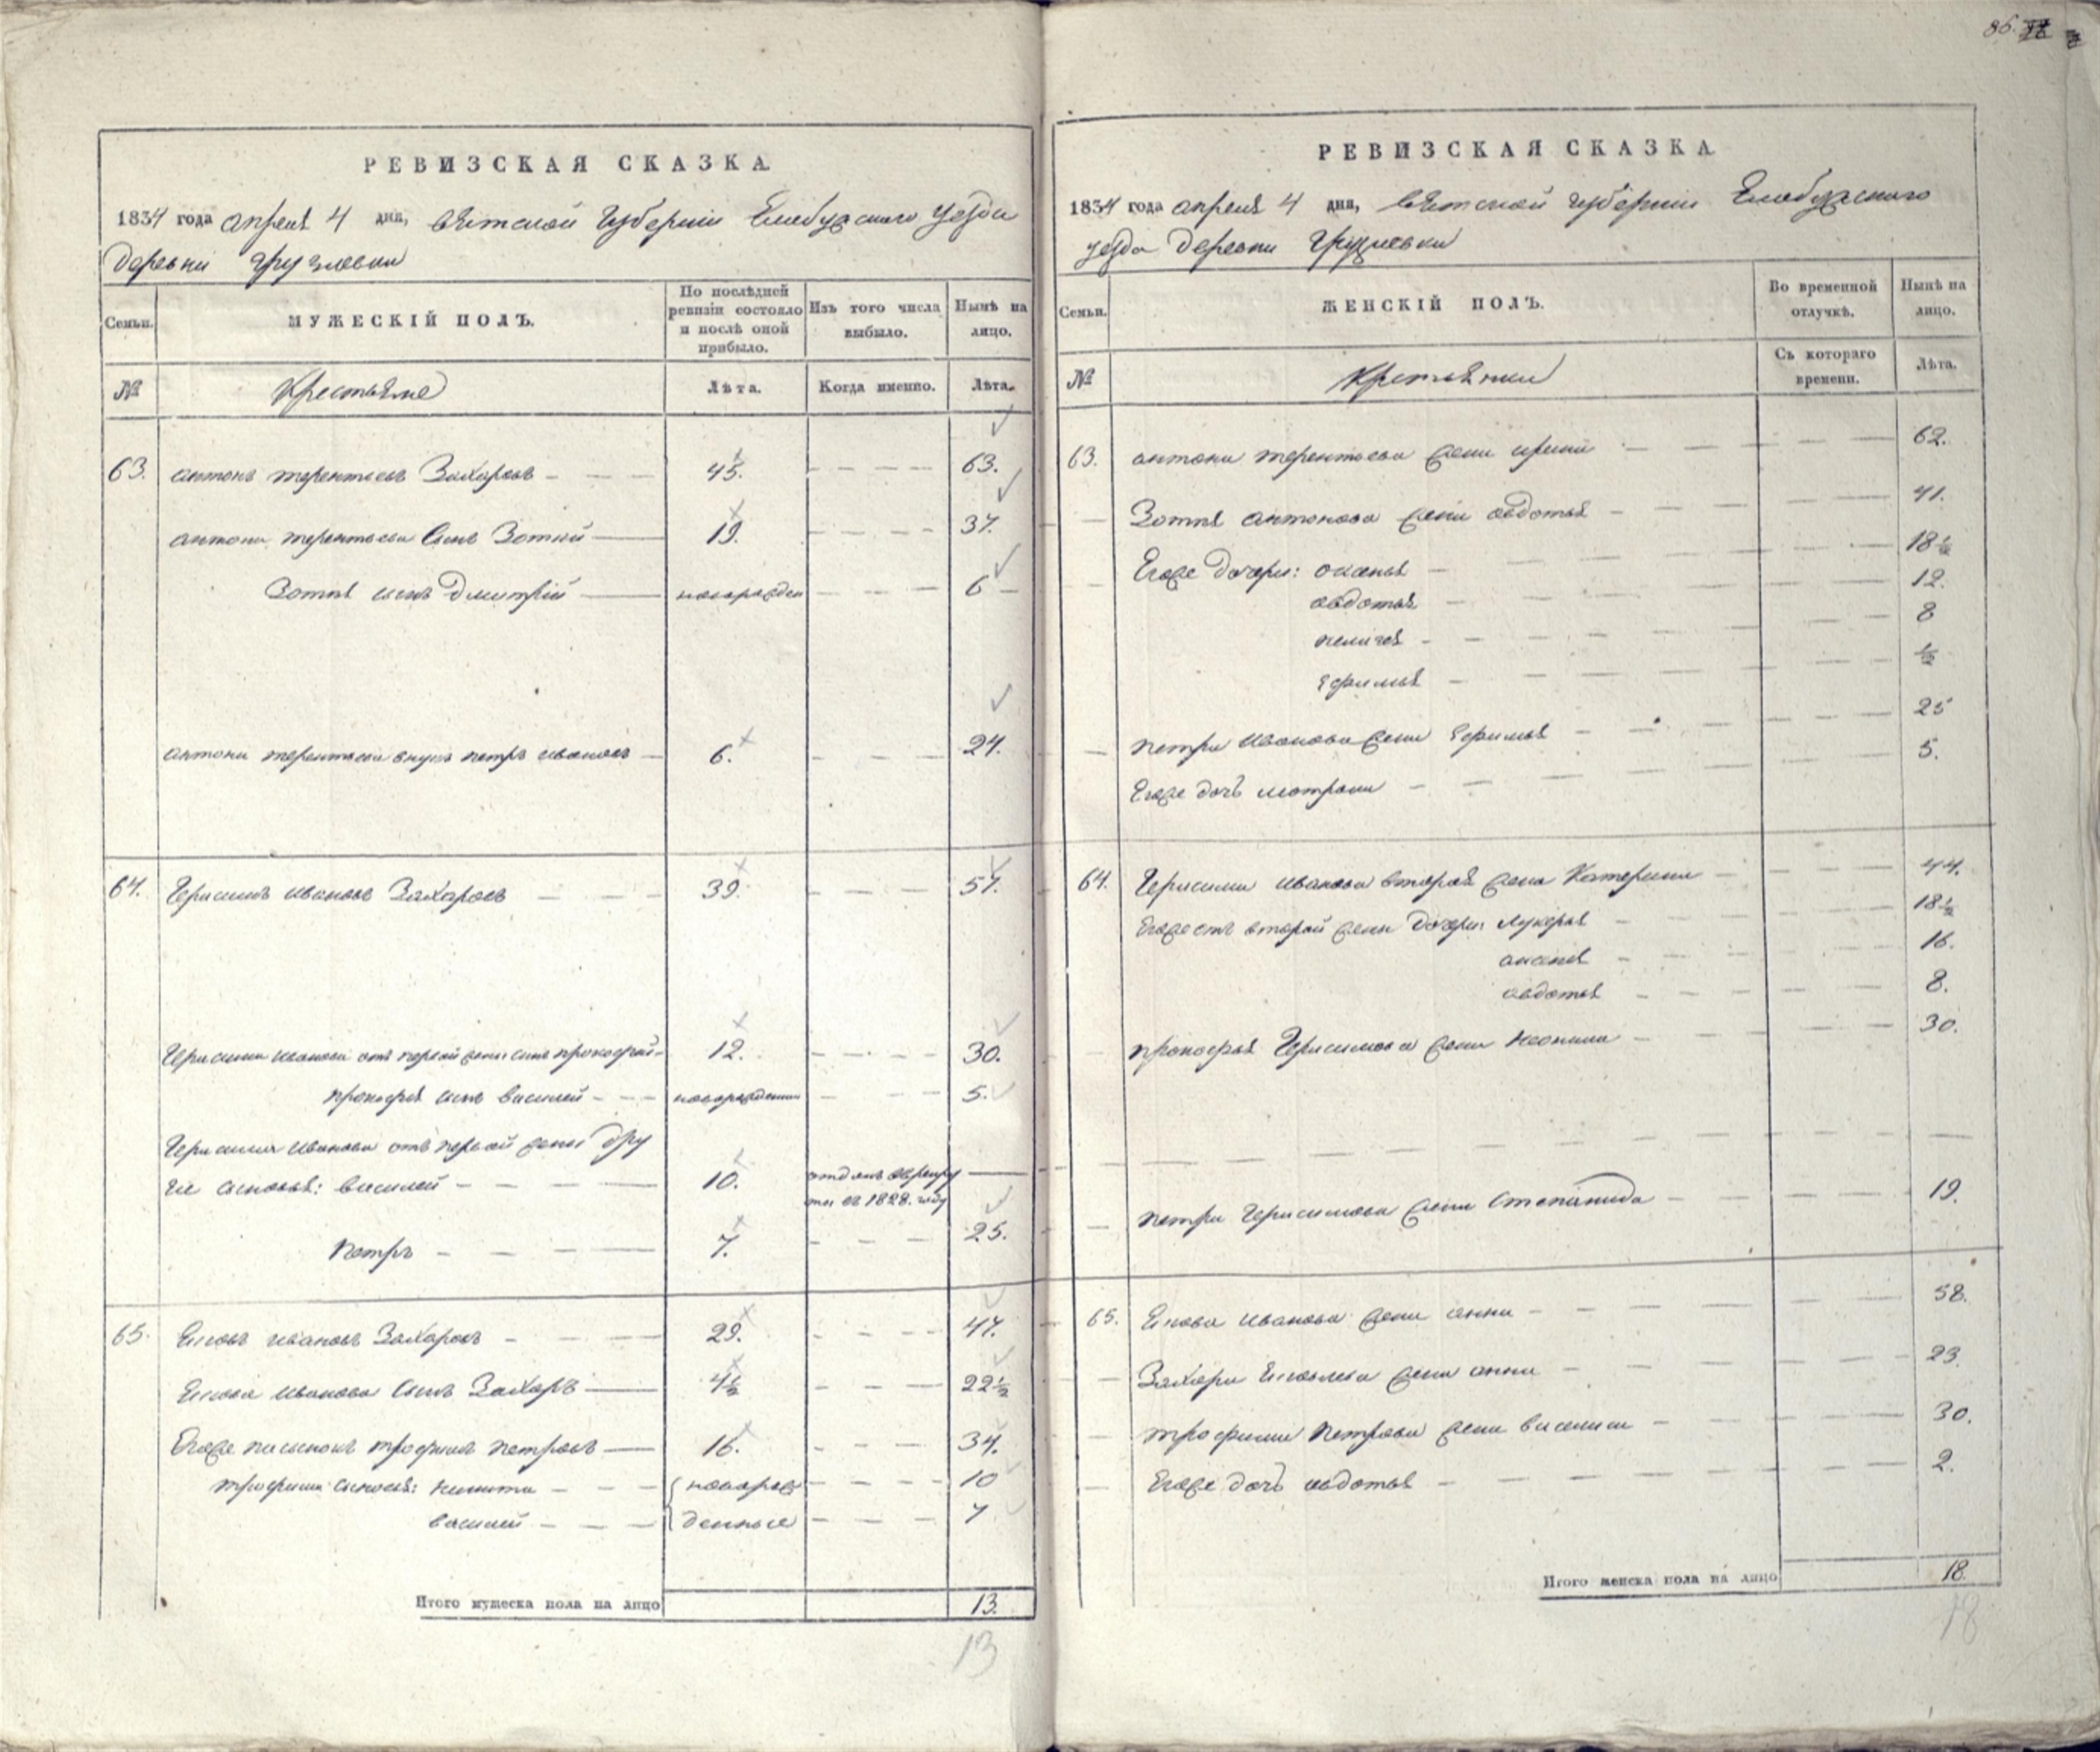 86.
РЕВИЗСКАЯ СКАЗКА
1834 года апреля 4 дня, вятской губернии Елабужского уезда
деревни Грузлевки
Семьи. МУЖЕСКІЙ ПОЛЪ. По послѣдней ревизіи состояло и послѣ оной прибыло. Изъ того числа выбыло. Нынѣ на лицо.
№ Крестьяне Лѣта. Когда именно. Лѣта.
63. антонъ терентьевъ Захаровъ 45. 63.
антона терентьева сынъ Зотий 19. 37.
Зотия сынъ Дмитрій новорожден 6
антона терентьева внукъ петръ ивановъ 6. 24.
64. Герасимъ ивановъ Захаровъ 39. 57.
Герасима иванова отъ первой жены сынъ прокофий 12. 30.
прокофья сынъ василей новорожденны 5.
Герасима иванова отъ первой жены дру
гие сыновья: василей 10. отданъ врекру
ты въ 1828. году
петръ 7. 25.
65. Яковъ ивановъ Захаровъ 29. 47.
Якова иванова сынъ Захаръ 4½ 22½
Егоже пасынокъ трофимъ петровъ 16. 34.
трофима сыновья: никита новорож 10
василей денные 7
Итого мужеска пола на лицо 13.
13
РЕВИЗСКАЯ СКАЗКА
1834 года апреля 4 дня, вятской губернии Елабужского
уезда деревни Грузлевки
Семьи. ЖЕНСКІЙ ПОЛЪ. Во временной отлучкѣ. Нынѣ на лицо.
№ Крестьянки Съ котораго времени. Лѣта.
63. антона терентьева жена ирина 62.
Зотия антонова жена авдотья 41.
Егоже дочери: оксинья 18½
авдотья 12.
пелагея 8
Ефимья ½
петра иванова жена Ефимья 25
Егоже дочь матрона 5.
64. Герасима иванова вторая жена Катерина 44.
Егоже отъ второй жены дочери: лукерья 18½
аксинья 16.
авдотья 8.
прокофья Герасимова жена неонила 30.
петра Герасимова жена степанида 19.
65. Якова иванова жена анна 58.
Захара Яковлева жена анна 23.
трофима петрова жена василиса 30.
Егоже дочь авдотья 2.
Итого женска пола на лицо 18.
18